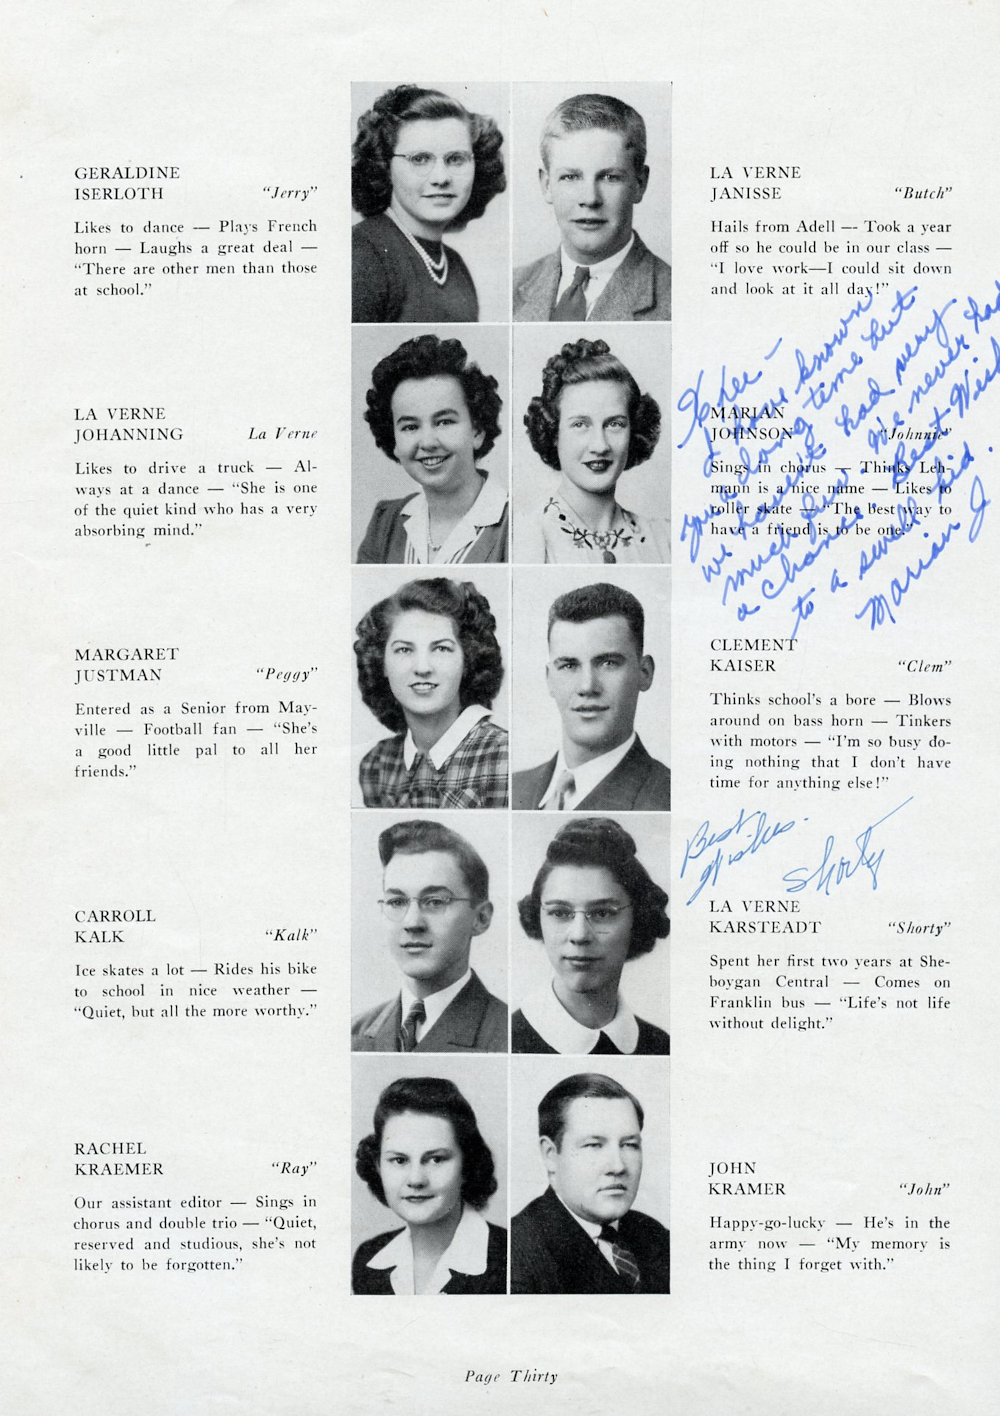 GERALDINE
ISERLOTH "Jerry"
Likes to dance — Plays French
horn — Laughs a great deal —
"There are other men than those
at school."
LA VERNE
JANISSE "Butch"
Hails from Adell — Took a year
off so he could be in our class —
"I love work—I could sit down
and look at it all day!"
LA VERNE
JOHANNING La Verne
Likes to drive a truck — Al-
ways at a dance — "She is one
of the quiet kind who has a very
absorbing mind."
MARIAN
JOHNSON "Johnnie"
Sings in chorus — Thinks Leh-
mann is a nice name — Likes to
roller skate — "The best way to
have a friend is to be one."
I have known
you a long time but
we haven't had very
much fun. We never had
a chance. Best Wish
to a swell kid.
Marian J
MARGARET
JUSTMAN "Peggy"
Entered as a Senior from May-
ville — Football fan — "She's
a good little pal to all her
friends."
CLEMENT
KAISER "Clem"
Thinks school's a bore — Blows
around on bass horn — Tinkers
with motors — "I'm so busy do-
ing nothing that I don't have
time for anything else!"
Best
Wishes.
Shorty
CARROLL
KALK "Kalk"
Ice skates a lot — Rides his bike
to school in nice weather —
"Quiet, but all the more worthy."
LA VERNE
KARSTEADT "Shorty"
Spent her first two years at She-
boygan Central — Comes on
Franklin bus — "Life's not life
without delight."
RACHEL
KRAEMER "Ray"
Our assistant editor — Sings in
chorus and double trio — "Quiet,
reserved and studious, she's not
likely to be forgotten."
JOHN
KRAMER "John"
Happy-go-lucky — He's in the
army now — "My memory is
the thing I forget with."
Page Thirty